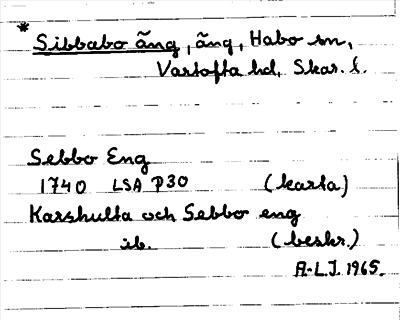 * Sibbabo äng, äng, Habo sn,
Vartofta hd, Skar. l.
Sebbo Eng
1740 LSA P30 (karta)
Karshulta och Sebbo eng
ib. (beskr.)
A-L.J. 1965.